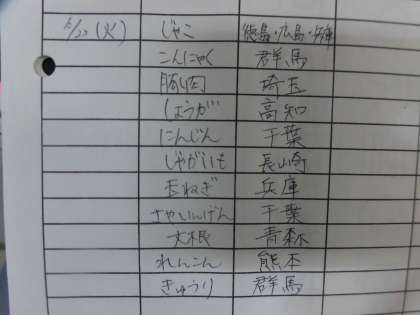 6/22(火) じゃこ 徳島・広島・兵庫
こんにゃく 群馬
豚肉 埼玉
しょうが 高知
にんじん 千葉
じゃがいも 長崎
玉ねぎ 兵庫
さやいんげん 千葉
大根 青森
れんこん 熊本
きゅうり 群馬